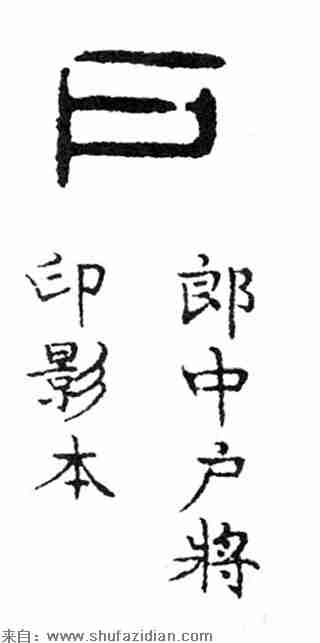 户
郎中户將
印影本
来自：www.shufazidian.com